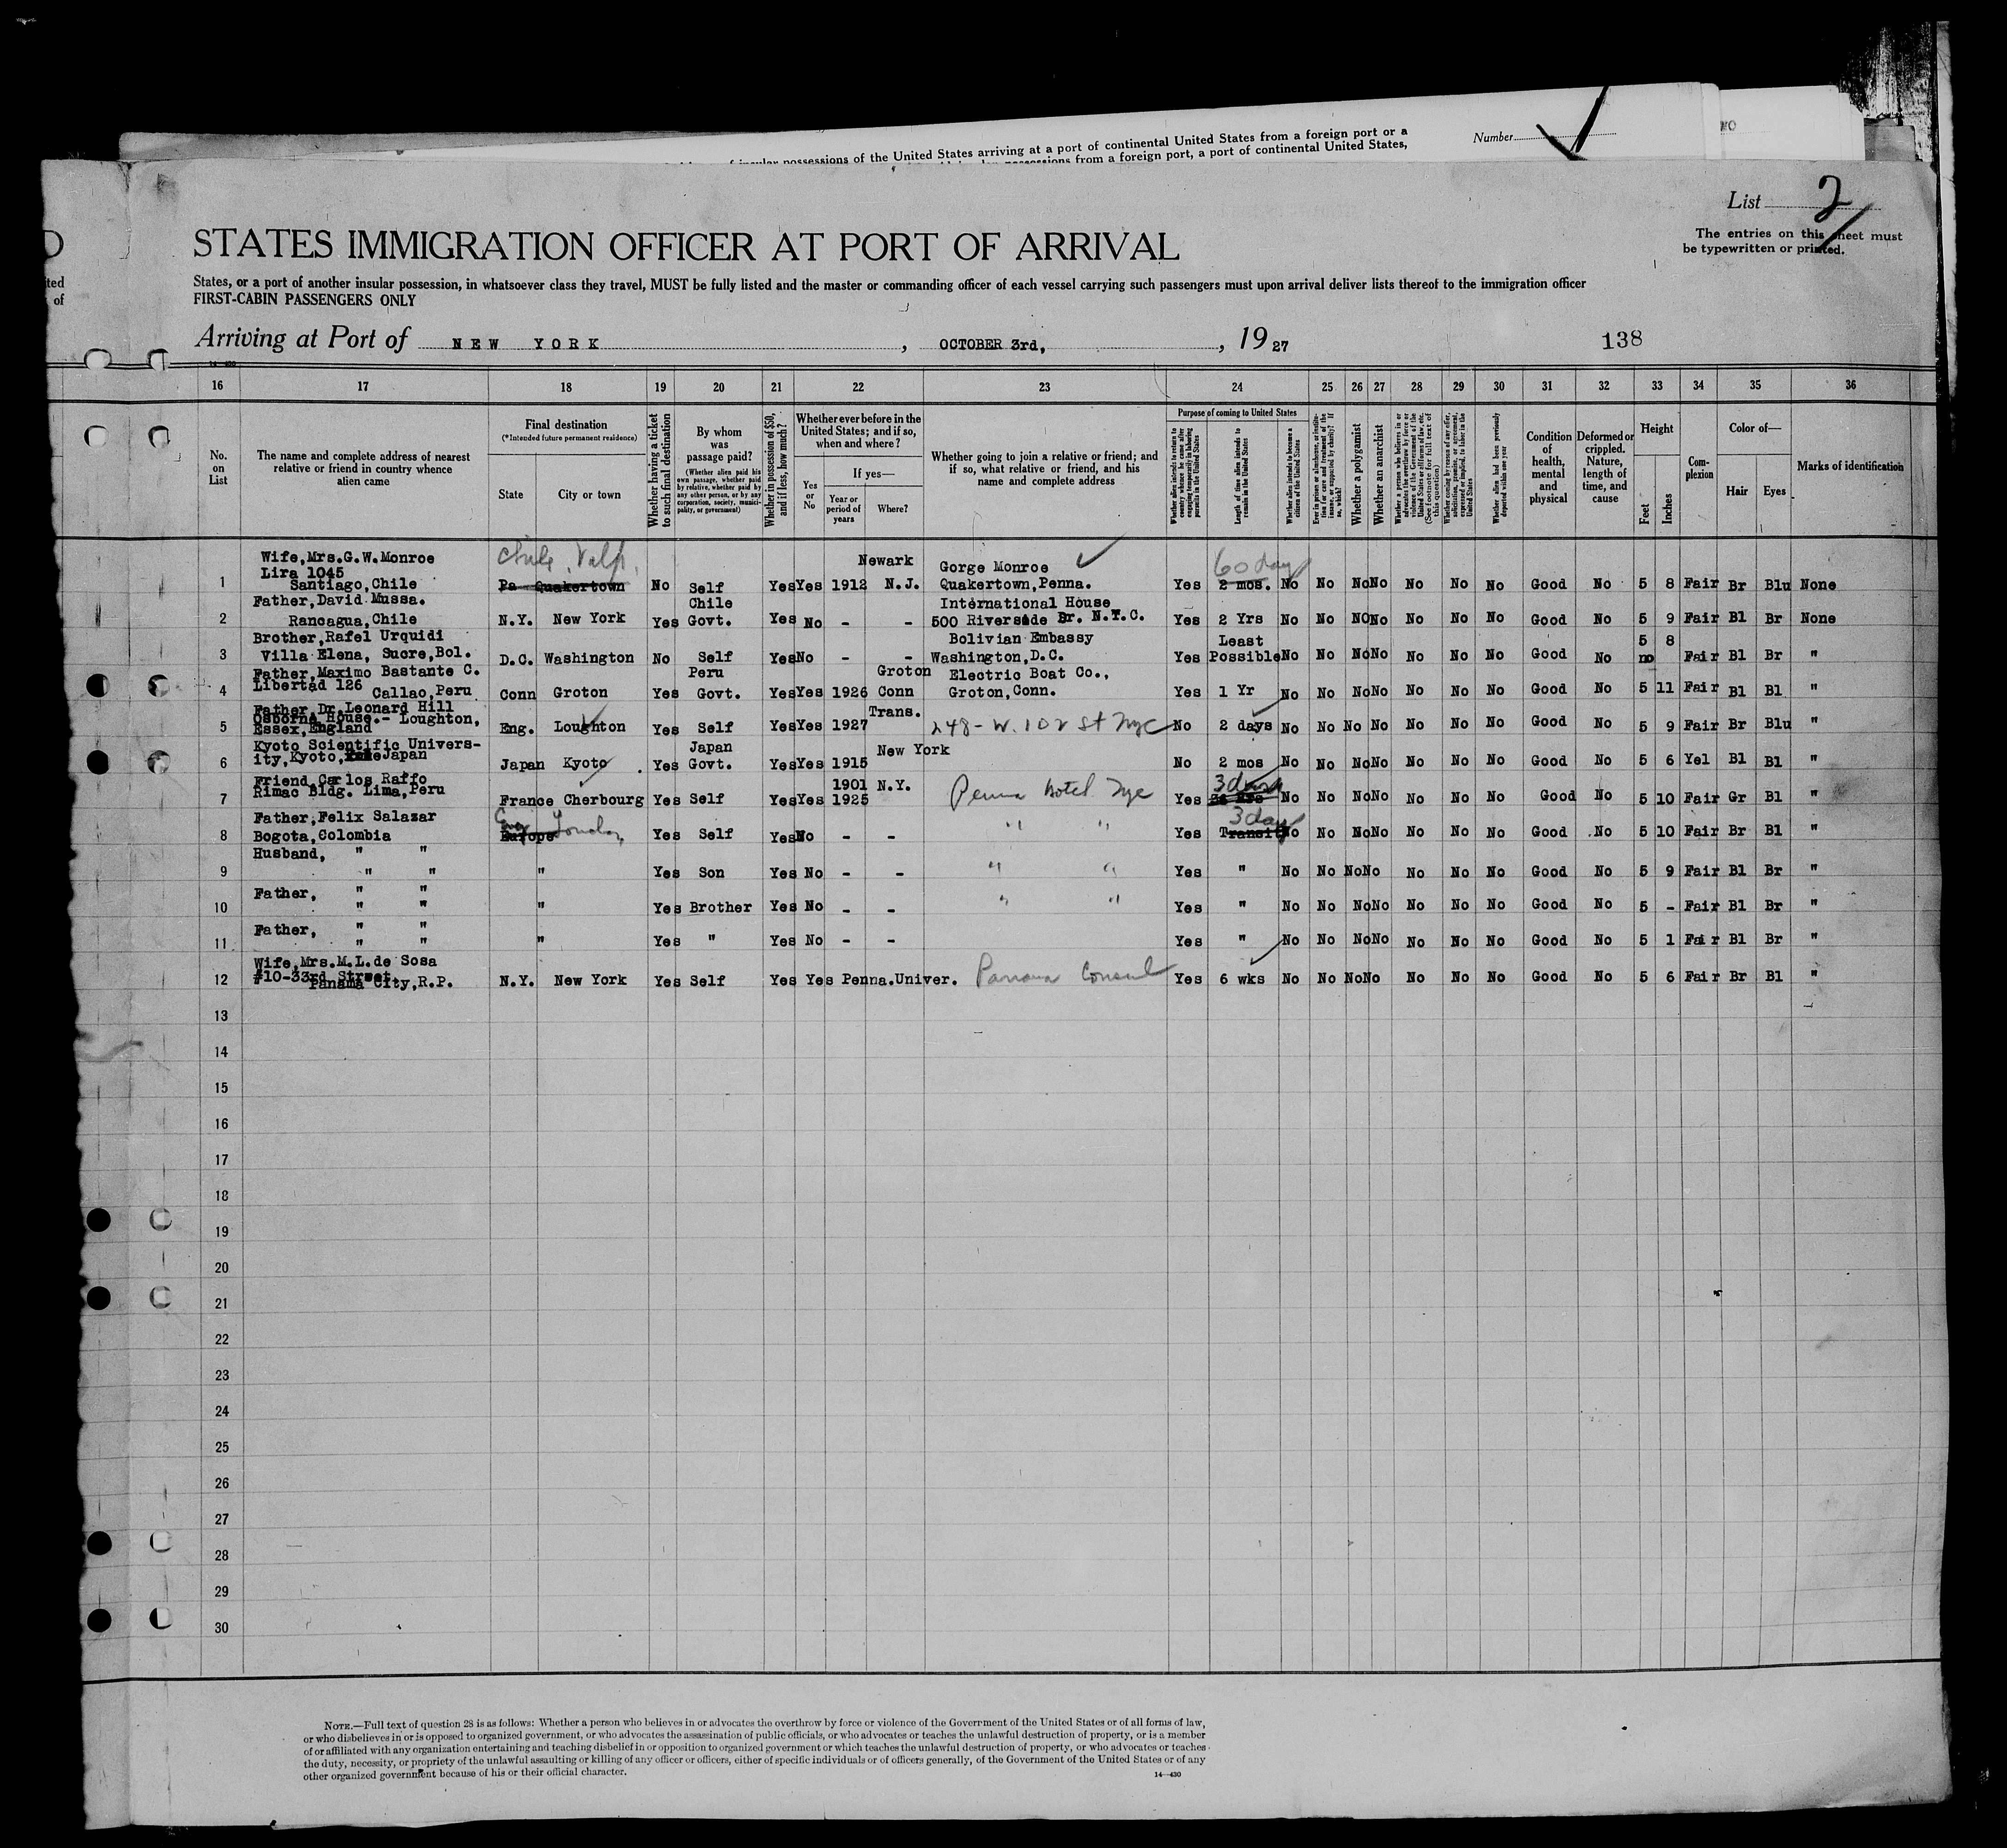 of insular possessions of the United States arriving at a port of continental United States from a foreign port or a
possessions from a foreign port, a port of continental United States,
Number
NO
List 2
The entries on this sheet must
be typewritten or printed.
STATES IMMIGRATION OFFICER AT PORT OF ARRIVAL
States, or a port of another insular possession, in whatsoever class they travel, MUST be fully listed and the master or commanding officer of each vessel carrying such passengers must upon arrival deliver lists thereof to the immigration officer
FIRST-CABIN PASSENGERS ONLY
Arriving at Port of NEW YORK, OCTOBER 3rd, 1927
138
16 17 18 19 20 21 22 23 24 25 26 27 28 29 30 31 32 33 34 35 36
No. on List
The name and complete address of nearest relative or friend in country whence alien came
Final destination
(*Intended future permanent residence)
State City or town
Whether having a ticket to such final destination
By whom was passage paid?
(Whether alien paid his own passage, whether paid by relative, whether paid by any other person, or by any corporation, society, municipality, or government)
Whether in possession of $50, and if less, how much?
Whether ever before in the United States; and if so, when and where?
Yes or No
If yes—
Year or period of years
Where?
Whether going to join a relative or friend; and if so, what relative or friend, and his name and complete address
Purpose of coming to United States
Whether alien intends to return to country whence he came after engaging temporarily in laboring pursuits in the United States
Length of time alien intends to remain in the United States
Whether alien intends to become a citizen of the United States
Ever in prison or almshouse, or institution for care and treatment of the insane, or supported by charity? If so, which?
Whether a polygamist
Whether an anarchist
Whether a person who believes in or advocates the overthrow by force or violence of the Government of the United States or all forms of law, etc. (See footnote for full text of this question)
Whether coming by reason of any offer, solicitation, promise, or agreement, expressed or implied, to labor in the United States
Whether alien had been previously deported within one year
Condition of health, mental and physical
Deformed or crippled. Nature, length of time, and cause
Height
Feet Inches
Complexion
Color of—
Hair Eyes
Marks of identification
Wife,Mrs.G.W.Monroe Chile Valp. Newark Gorge Monroe 60 days
Lira 1045
1 Santiago,Chile Pa Quakertown No Self Yes Yes 1912 N.J. Quakertown,Penna. Yes 2 mos. No No No No No No No Good No 5 8 Fair Br Blu None
Father,David Mussa. Chile International House
2 Rancagua,Chile N.Y. New York Yes Govt. Yes No - - 500 Riverside Dr. N.Y.C. Yes 2 Yrs No No No No No No No Good No 5 9 Fair Bl Br None
Brother,Rafel Urquidi Bolivian Embassy Least 5 8
3 Villa Elena, Sucre,Bol. D.C. Washington No Self Yes No - - Washington,D.C. Yes Possible No No No No No No No Good No no Fair Bl Br "
Father,Maximo Bastante C. Peru Groton Electric Boat Co.,
4 Libertad 126 Callao,Peru Conn Groton Yes Govt. Yes Yes 1926 Conn Groton,Conn. Yes 1 Yr No No No No No No No Good No 5 11 Fair Bl Bl "
Father,Dr.Leonard Hill Trans.
Osborne House.- Loughton,
5 Essex,England Eng. Loughton Yes Self Yes Yes 1927 248 - W. 102 St Nyc No 2 days No No No No No No No Good No 5 9 Fair Br Blu "
Kyoto Scientific Univers- Japan New York
6 ity,Kyoto, Japan Japan Kyoto Yes Govt. Yes Yes 1915 No 2 mos No No No No No No No Good No 5 6 Yel Bl Bl "
Friend,Carlos Raffo 1901 N.Y. 3 days
7 Rimac Bldg. Lima,Peru France Cherbourg Yes Self Yes Yes 1925 Penna Hotel Nyc Yes No No No No No No No Good No 5 10 Fair Gr Bl "
Father,Felix Salazar Eng London 3 days
8 Bogota,Colombia Europe Yes Self Yes No - - " " Yes Transit No No No No No No No Good No 5 10 Fair Br Bl "
Husband, " "
9 " " " Yes Son Yes No - - " " Yes " No No No No No No No Good No 5 9 Fair Bl Br "
Father, " "
10 " " " Yes Brother Yes No - - " " Yes " No No No No No No No Good No 5 - Fair Bl Br "
Father, " "
11 " " " Yes " Yes No - - Yes " No No No No No No No Good No 5 1 Fair Bl Br "
Wife,Mrs.M.L.de Sosa
#10-33rd Street
12 Panama City,R.P. N.Y. New York Yes Self Yes Yes Penna.Univer. Panama Consul Yes 6 wks No No No No No No No Good No 5 6 Fair Br Bl "
13
14
15
16
17
18
19
20
21
22
23
24
25
26
27
28
29
30
NOTE.—Full text of question 28 is as follows: Whether a person who believes in or advocates the overthrow by force or violence of the Government of the United States or of all forms of law,
or who disbelieves in or is opposed to organized government, or who advocates the assassination of public officials, or who advocates or teaches the unlawful destruction of property, or is a member
of or affiliated with any organization entertaining and teaching disbelief in or opposition to organized government or which teaches the unlawful destruction of property, or who advocates or teaches
the duty, necessity, or propriety of the unlawful assaulting or killing of any officer or officers, either of specific individuals or of officers generally, of the Government of the United States or of any
other organized government because of his or their official character.
14—430